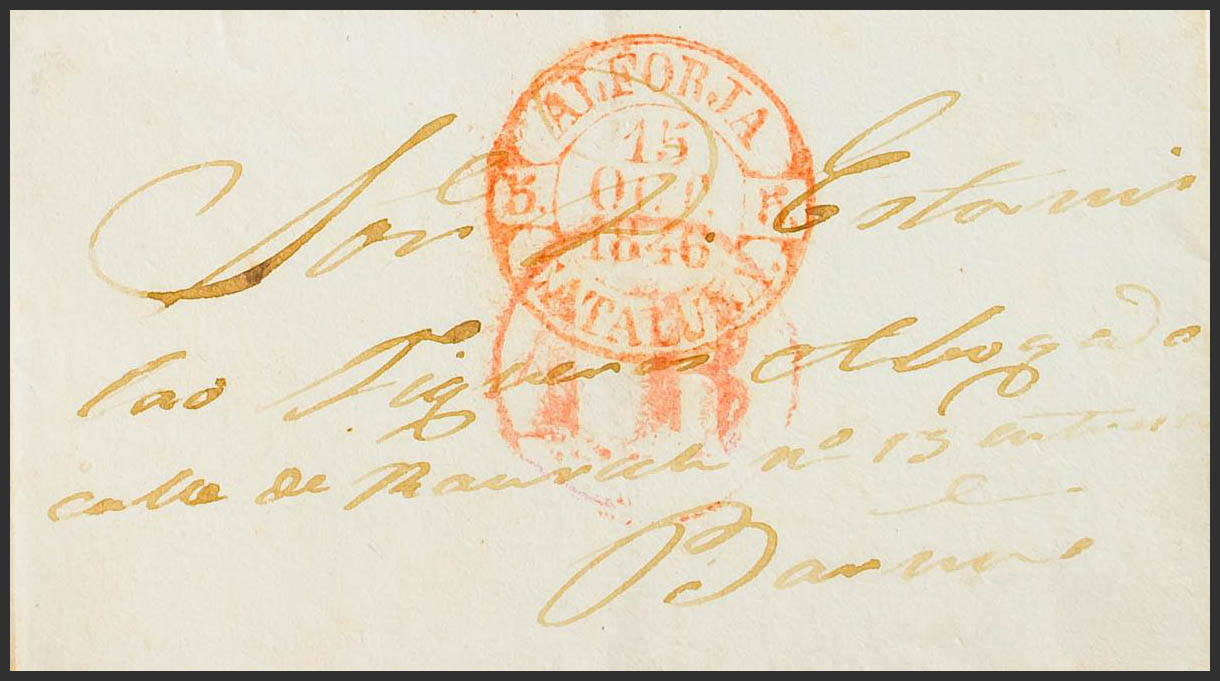 ALFORJA
15
OCT.
1846
5. 
CATALUÑA.
Sor D. Estanis
lao Figueras Abogado
calle de nº 13